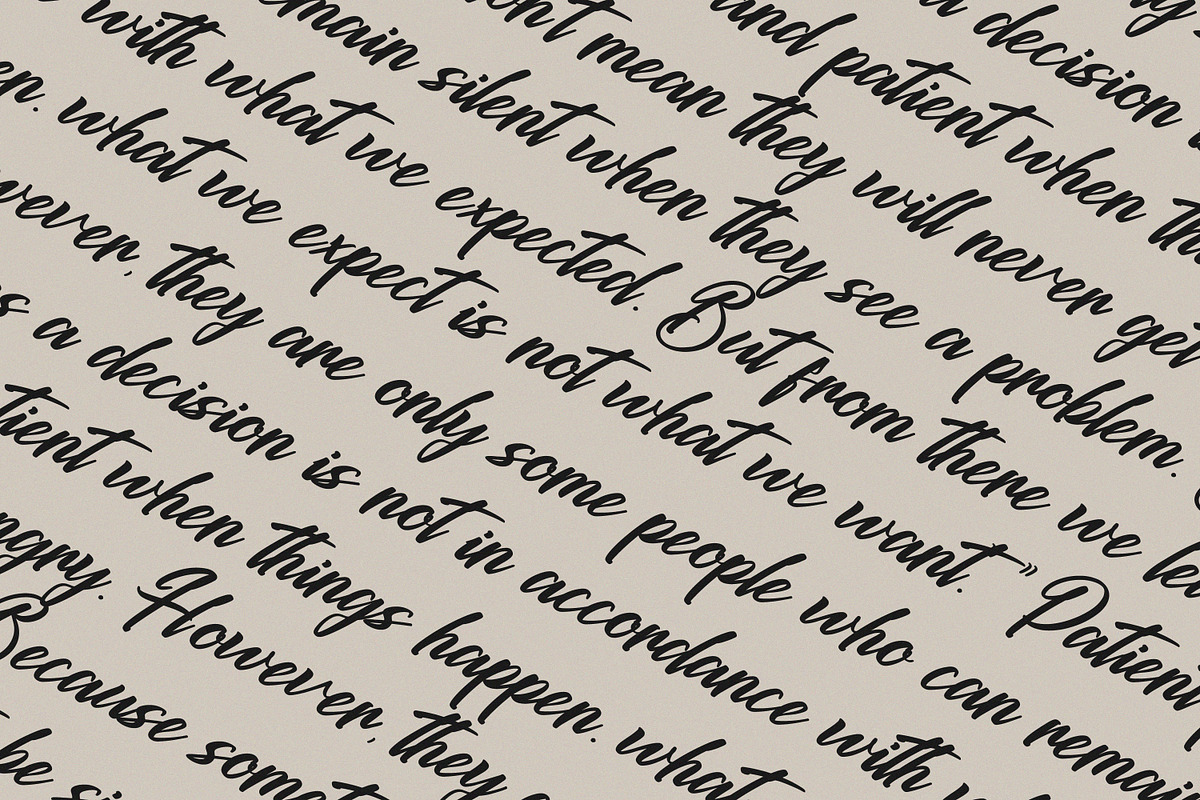 a decision
and patient when th
on't mean they will never get
main silent when they see a problem.
with what we expected. But from there we le
en. what we expect is not what we want.” Patien
wever, they are only some people who can remai
s a decision is not in accordance with
tient when things happen. what
ngry. However, they
Because somet
be si